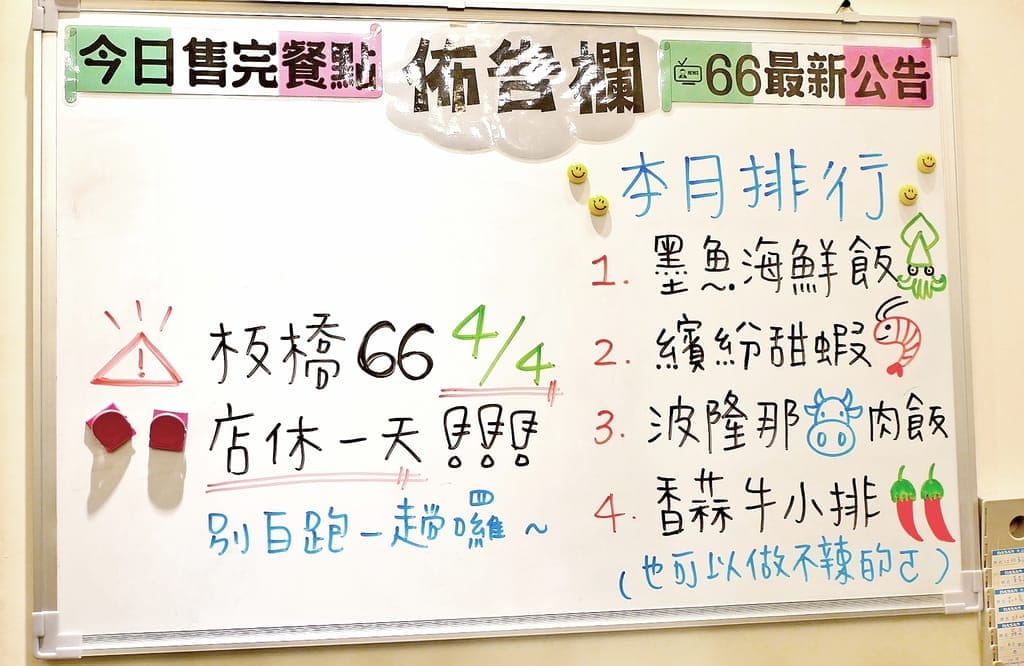 今日售完餐點
佈告欄
NEWS 66最新公告
板橋66 4/4
店休一天!!!
別白跑一趟囉~
本月排行
1. 墨魚海鮮飯
2. 繽紛甜蝦
3. 波隆那肉飯
4. 香蒜牛小排
(也可以做不辣的さ)